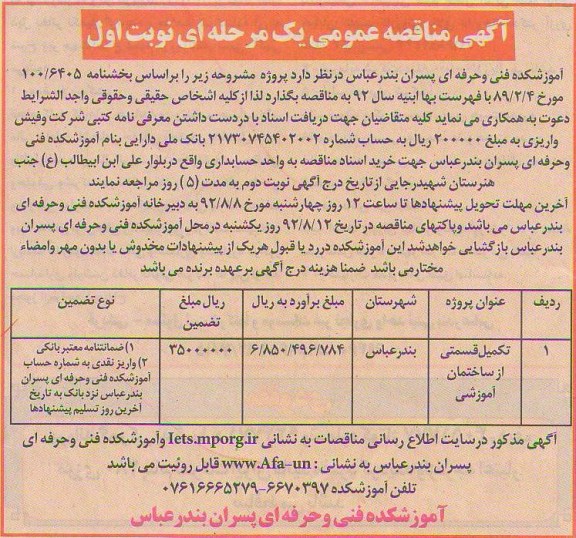 آگهی مناقصه عمومی یک مرحله ای نوبت اول
آموزشکده فنی وحرفه ای پسران بندرعباس درنظر دارد پروژه مشروحه زیر را براساس بخشنامه ۱۰۰/۶۴۰۵
مورخ ۸۹/۲/۴ با فهرست بها ابنیه سال ۹۲ به مناقصه بگذارد لذا از کلیه اشخاص حقیقی وحقوقی واجد الشرایط
دعوت به همکاری می نماید کلیه متقاضیان جهت دریافت اسناد با دردست داشتن معرفی نامه کتبی شرکت وفیش
واریزی به مبلغ ۲۰۰۰۰۰ ریال به حساب شماره ۲۱۷۳۰۷۴۵۴۰۲۰۰۲ بانک ملی دارایی بنام آموزشکده فنی
وحرفه ای پسران بندرعباس جهت خرید اسناد مناقصه به واحد حسابداری واقع دربلوار علی ابن ابیطالب (ع) جنب
هنرستان شهیدرجایی از تاریخ درج آگهی نوبت دوم به مدت (۵) روز مراجعه نمایند
آخرین مهلت تحویل پیشنهادها تا ساعت ۱۲ روز چهارشنبه مورخ ۹۲/۸/۸ به دبیرخانه آموزشکده فنی وحرفه ای
بندرعباس می باشد وپاکتهای مناقصه درتاریخ ۹۲/۸/۱۲ روز یکشنبه درمحل آموزشکده فنی وحرفه ای پسران
بندرعباس بازگشایی خواهدشد این آموزشکده دررد یا قبول هریک از پیشنهادات مخدوش یا بدون مهر وامضاء
مختار می باشد ضمنا هزینه درج آگهی برعهده برنده می باشد
ردیف عنوان پروژه شهرستان مبلغ برآوره به ریال ریال مبلغ تضمین نوع تضمین
۱ تکمیل قسمتی بندرعباس ۶/۸۵۰/۴۹۶/۷۸۴ ۳۵۰۰۰۰۰۰ ۱) ضمانتنامه معتبر بانکی
از ساختمان ۲) واریز نقدی به شماره حساب
آموزشی آموزشکده فنی وحرفه ای پسران
بندرعباس نزد بانک به تاریخ
آخرین روز تسلیم پیشنهادها
آگهی مذکور درسایت اطلاع رسانی مناقصات به نشانی Iets.mporg.ir وآموزشکده فنی وحرفه ای
پسران بندرعباس به نشانی : www.Afa-un قابل روئیت می باشد
تلفن آموزشکده ۶۶۷۰۳۹۷-۰۷۶۱۶۶۶۵۲۷۹
آموزشکده فنی وحرفه ای پسران بندرعباس